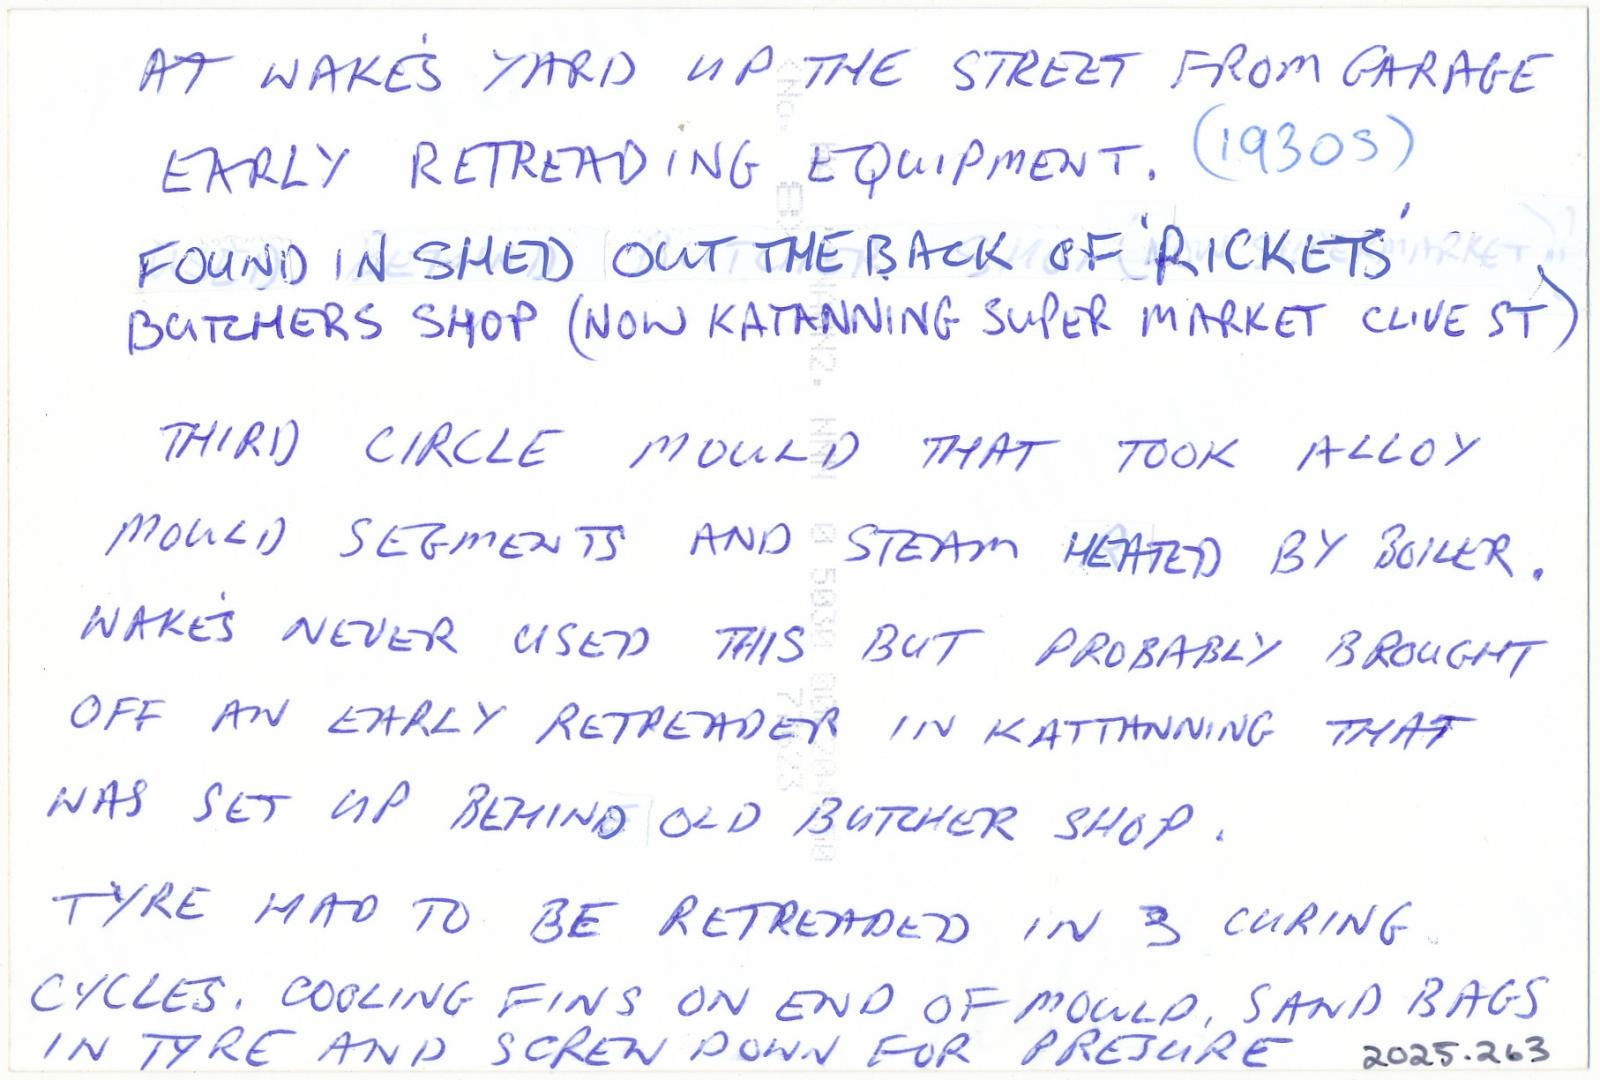 AT WAKE'S YARD UP THE STREET FROM GARAGE
EARLY RETREADING EQUIPMENT. (1930S)
FOUND IN SHED OUT THE BACK OF 'RICKETS'
BUTCHERS SHOP (NOW KATANNING SUPER MARKET CLIVE ST)
THIRD CIRCLE MOULD THAT TOOK ALLOY
MOULD SEGMENTS AND STEAM HEATED BY BOILER.
WAKE'S NEVER USED THIS BUT PROBABLY BROUGHT
OFF AN EARLY RETREADER IN KATTANNING THAT
WAS SET UP BEHIND OLD BUTCHER SHOP.
TYRE HAD TO BE RETREADED IN 3 CURING
CYCLES. COOLING FINS ON END OF MOULD, SAND BAGS
IN TYRE AND SCREW DOWN FOR PRESURE
2025.263